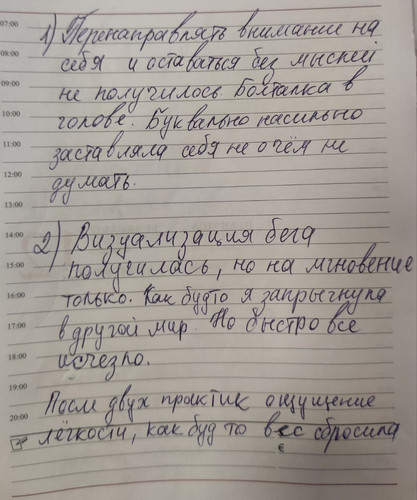 07:00
08:00
09:00
10:00
11:00
12:00
13:00
14:00
15:00
16:00
17:00
18:00
19:00
20:00
1) Перенаправлять внимание на
себя и оставаться без мыслей
не получилось Болталка в
голове. Буквально насильно
заставляла себя не о чём не
думать.
2) Визуализация бега
получилась, но на мгновение
только. Как будто я запрыгнула
в другой мир. Но быстро все
исчезло.
После двух практик ощущение
лёгкости, как будто вес сбросила